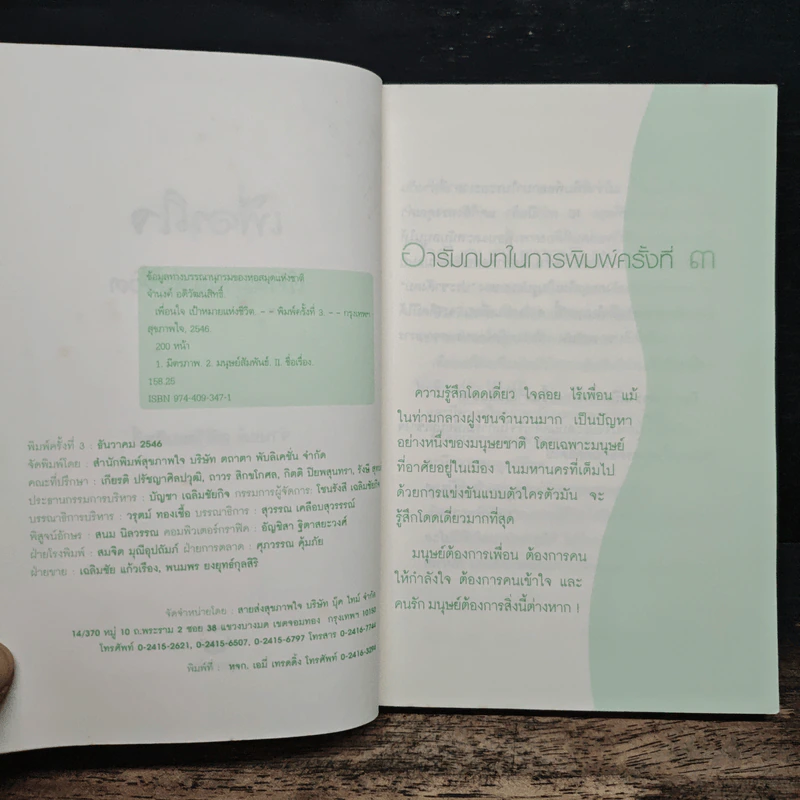 ข้อมูลทางบรรณานุกรมของหอสมุดแห่งชาติ
จำนงค์ อดิวัฒนสิทธิ์
เพื่อนใจ เป้าหมายแห่งชีวิต. - - พิมพ์ครั้งที่ 3. - - กรุงเทพฯ
สุขภาพใจ, 2546.
200 หน้า
1. มิตรภาพ 2. มนุษย์สัมพันธ์. II. ชื่อเรื่อง.
158.25
ISBN 974-409-347-1
พิมพ์ครั้งที่ 3 : ธันวาคม 2546
จัดพิมพ์โดย : สำนักพิมพ์สุขภาพใจ บริษัท ตถาตา พับลิเคชั่น จำกัด
คณะที่ปรึกษา : เกียรติ ปรัชญาศิลปวุฒิ, ถาวร สิกขโกศล, กิตติ ปิยพสุนทรา, รังษี
ประธานกรรมการบริหาร : บัญชา เฉลิมชัยกิจ กรรมการผู้จัดการ: โชนรังสี เฉลิมชัยกิจ
บรรณาธิการบริหาร : วรุตม์ ทองเชื้อ บรรณาธิการ : สุวรรณ เคลือบสุวรรณ์
พิสูจน์อักษร : สนม นิลวรรณ คอมพิวเตอร์กราฟิค : อัญชิสา ฐิตาสยะวงศ์
ฝ่ายโรงพิมพ์ : สมจิต มุณีอุปถัมภ์ ฝ่ายการตลาด : ศุภวรรณ คุ้มภัย
ฝ่ายขาย : เฉลิมชัย แก้วเรือง, พนมพร ยงยุทธ์กุลสิริ
จัดจำหน่ายโดย : สายส่งสุขภาพใจ บริษัท บุ๊ค ไทม์ จำกัด
14/370 หมู่ 10 ถ.พระราม 2 ซอย 38 แขวงบางมด เขตจอมทอง กรุงเทพฯ 10150
โทรศัพท์ 0-2415-2621, 0-2415-6507, 0-2415-6797 โทรสาร 0-2416-7744
พิมพ์ที่ : หจก. เอมี่ เทรดดิ้ง โทรศัพท์ 0-2416-3299
อารัมภบทในการพิมพ์ครั้งที่ ๓
ความรู้สึกโดดเดี่ยว ใจลอย ไร้เพื่อน แม้
ในท่ามกลางฝูงชนจำนวนมาก เป็นปัญหา
อย่างหนึ่งของมนุษยชาติ โดยเฉพาะมนุษย์
ที่อาศัยอยู่ในเมือง ในมหานครที่เต็มไป
ด้วยการแข่งขันแบบตัวใครตัวมัน จะ
รู้สึกโดดเดี่ยวมากที่สุด
มนุษย์ต้องการเพื่อน ต้องการคน
ให้กำลังใจ ต้องการคนเข้าใจ และ
คนรัก มนุษย์ต้องการสิ่งนี้ต่างหาก !